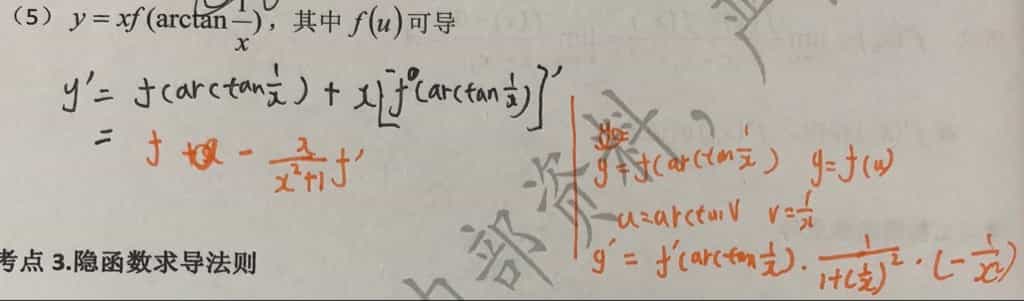 （5） y = xf(arctan 1/x)，其中 f(u)可导
y' = f(arctan 1/x) + x[f(arctan 1/x)]'
= f - x/(x²+1) f'
y = f(arctan 1/x) y = f(u)
u = arctan V V = 1/x
y' = f'(arctan 1/x) · 1/(1+(1/x)²) · (-1/x²)
考点 3.隐函数求导法则
部资料